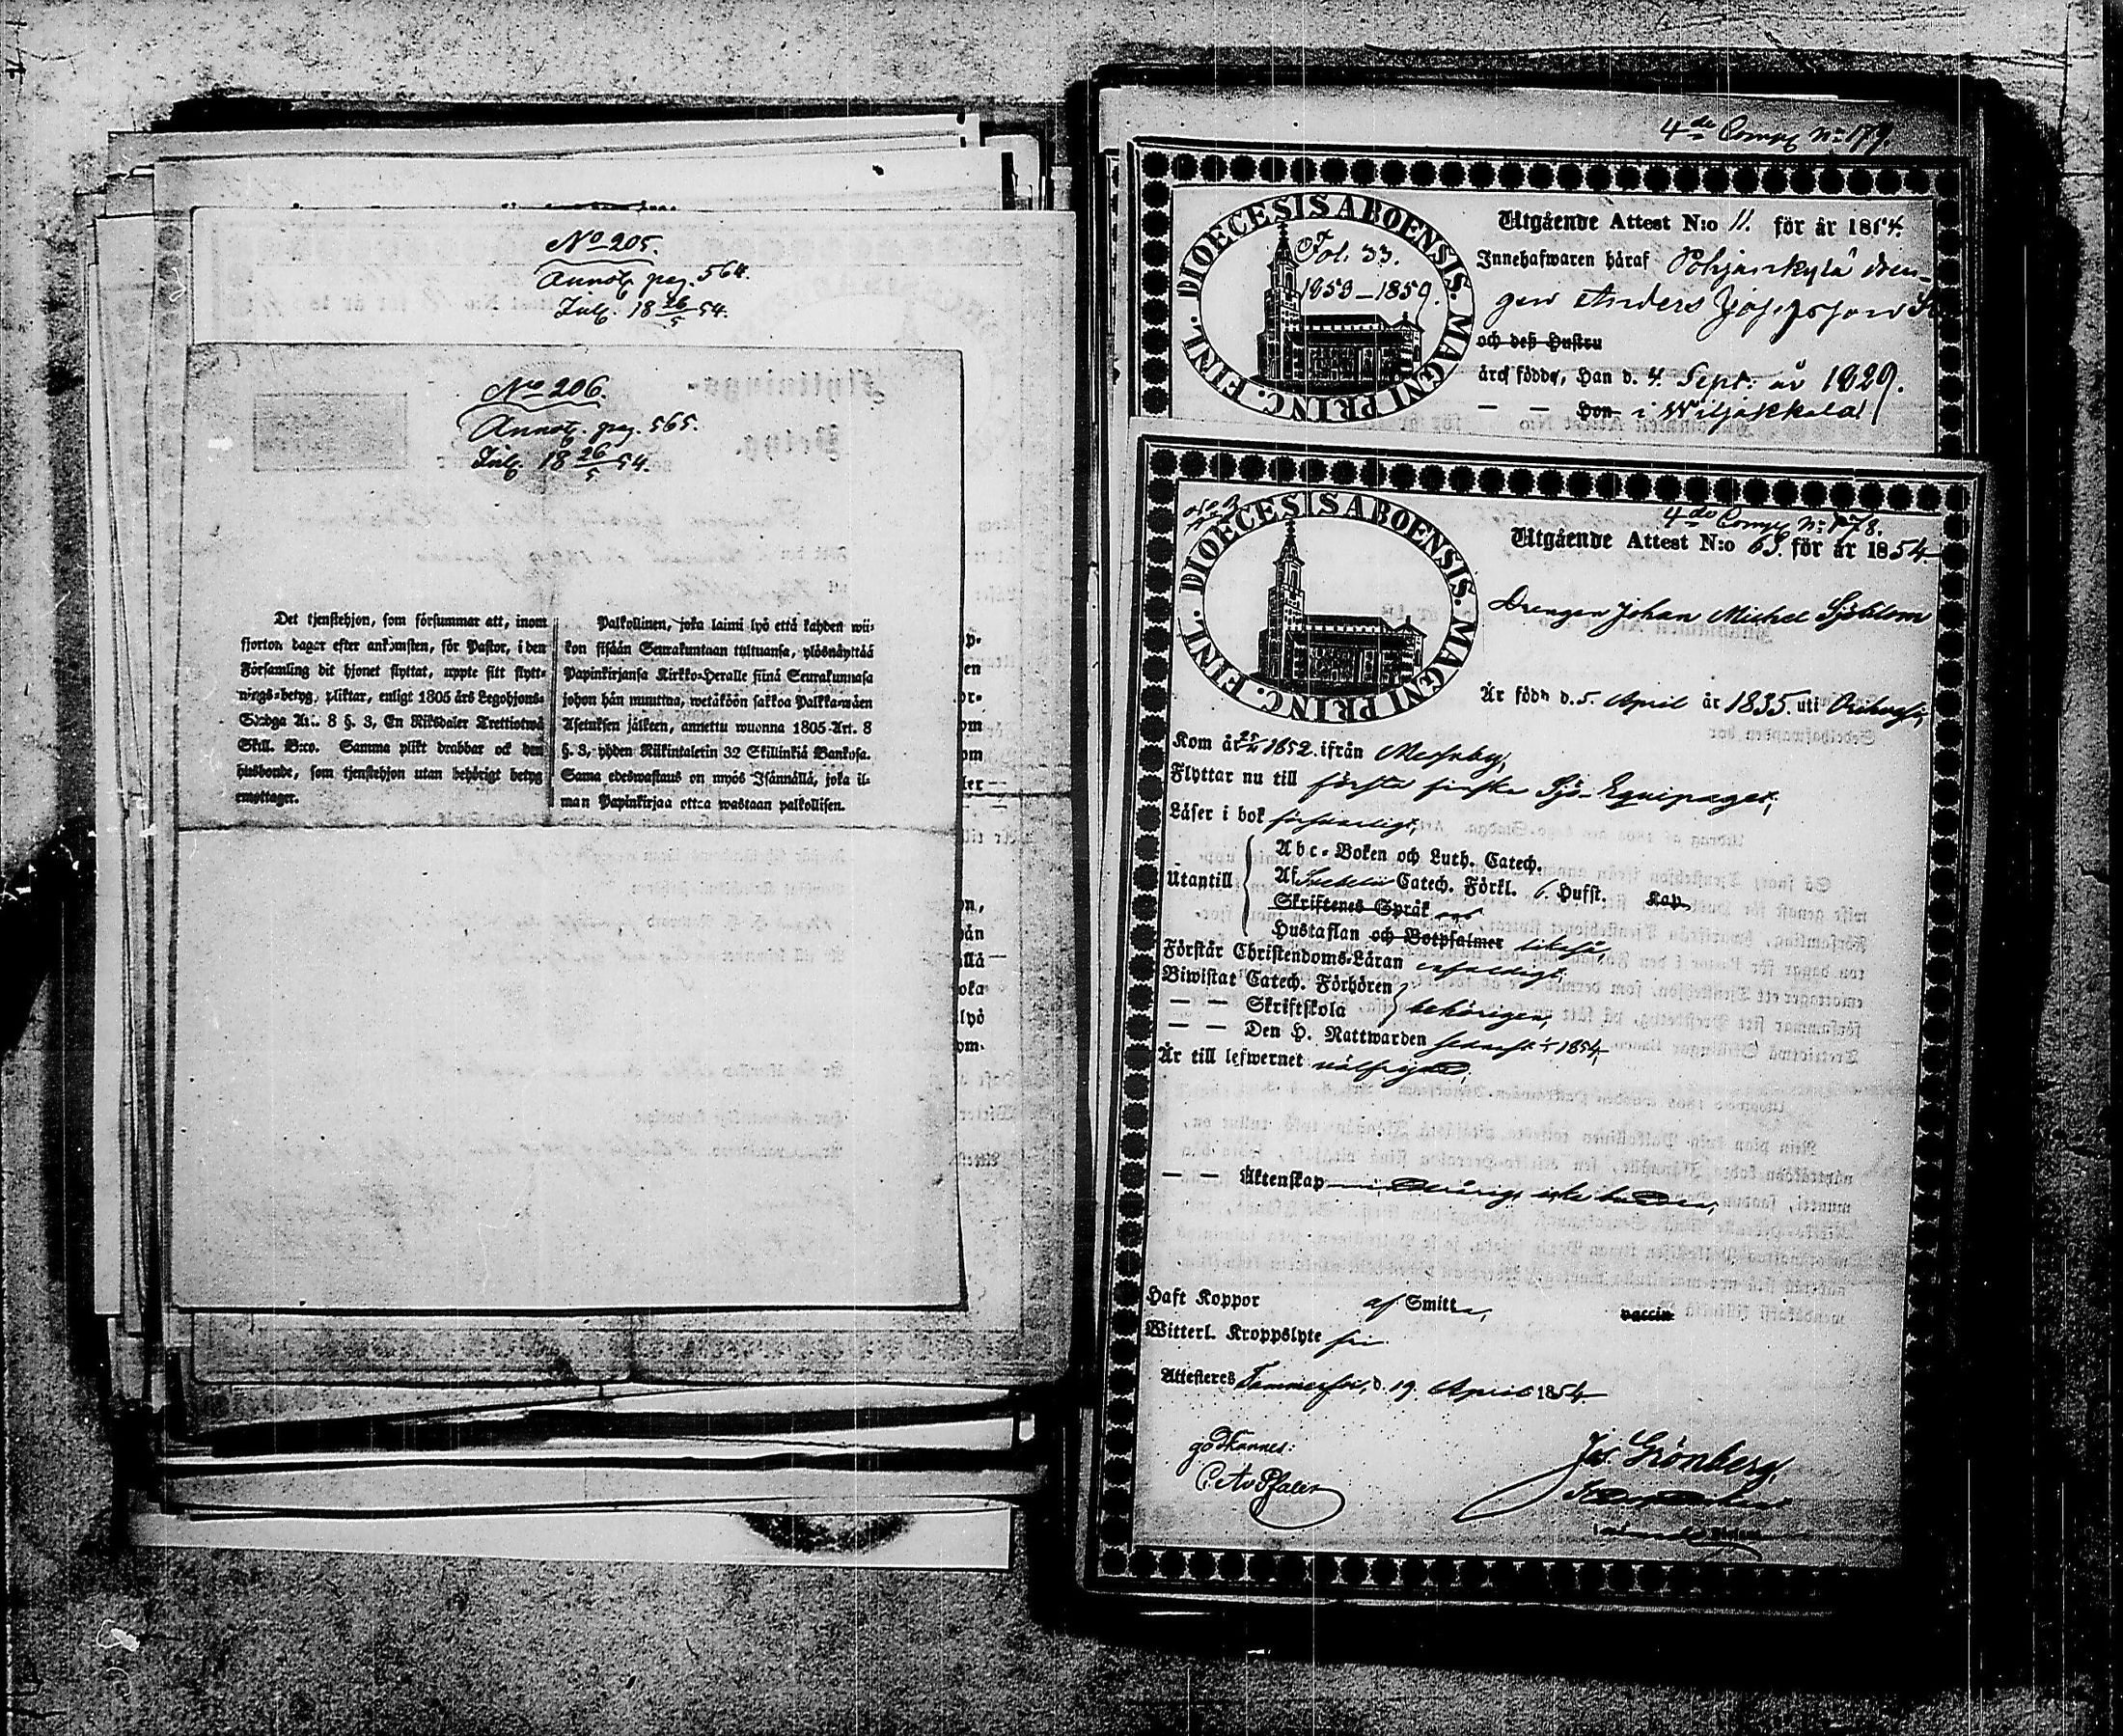 No 205.
Annot. pag. 564.
Jul. 18 26/5 54.
No 206.
Annot. pag. 565.
Jul. 18 26/5 54.
Det tjenstehjon, som försummar att, inom
fjorton dagar efter ankomsten, för Pastor, i den
Församling dit hjonet flyttat, uppte sitt flytt-
nings-betyg, pliktar, enligt 1805 års Legohjons-
Stadga Art. 8 §. 3, En Riksdaler Trettiotwå
Skill. B:co. Samma plikt drabbar ock den
husbonde, som tjenstehjon utan behörigt betyg
emottager.
Palkollinen, joka laimi lyö että kahden wii-
kon sisään Seurakuntaan tultuansa, ylösnäyttää
Papinkirjansa Kirkko-Heralle siinä Seurakunnasa
johon hän muuttaa, wetäköön sakkoa Palkkawäen
Asetuksen jälkeen, annettu wuonna 1805 Art. 8
§. 3, yhden Riikintaletin 32 Skillinkiä Bankosa.
Sama edeswastaus on myös Isännällä, joka il-
man Papinkirjaa ottaa wastaan palkollisen.
4de Comp No 179.
DIOECESIS ABOENSIS. MAGNI PRINC. FINL.
Fol. 33.
1853-1859.
Utgående Attest N:o 11. för år 1854.
Innehafwaren håraf Pohjankylä dren-
gen Anders Josefsson
och deß Hustru
äro födde, Han d. 4. Sept. år 1829.
— — Hon i Wiljakkala
4de Comp No 178.
DIOECESIS ABOENSIS. MAGNI PRINC. FINL.
Utgående Attest N:o 63. för år 1854.
Drengen Johan Michel Sjöblom
Är född d. 5. April år 1835. uti Orihvesi,
Kom år 1852. ifrån Messuby,
Flyttar nu till första finska Sjö-Equipaget,
Läser i bok försvarligt,
Utantill
Abc-Boken och Luth. Catech.
Af Svebelii Catech. Förkl. 6 Hufst. Kap.
Skriftenes Språk
Hustaflan och Botpsalmer likaså,
Förstår Christendoms-Läran enfaldigt,
Biwistat Catech. Förhören
— — Skriftskola behörigen,
— — Den H. Nattwarden senast 1854,
Är till lefwernet välfrejdad,
— — Äktenskap
Haft Koppor af Smitta, vaccin
Witterl. Kroppslyte fri
Attesteras Tammerfors, d. 19. April 1854.
godkannes:
Js. Grönberg,